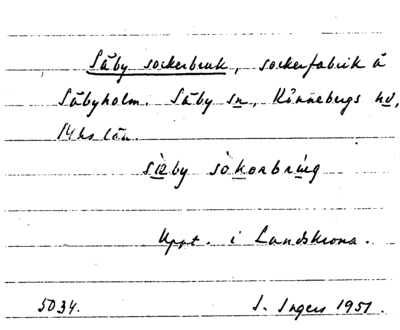 Säby sockerbruk, sockerfabrik å
Säbyholm. Säby sn, Rönnebergs hd,
Mhs län.
by sòkorbriŋ
Uppt. i Landskrona.
5034. I. Ingers 1951.